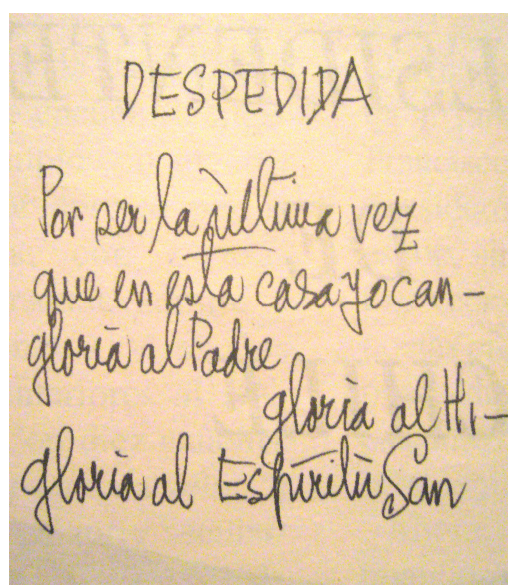 DESPEDIDA
Por ser la última vez
que en esta casa yo can-
gloria al Padre
gloria al Hi-
gloria al Espíritu San